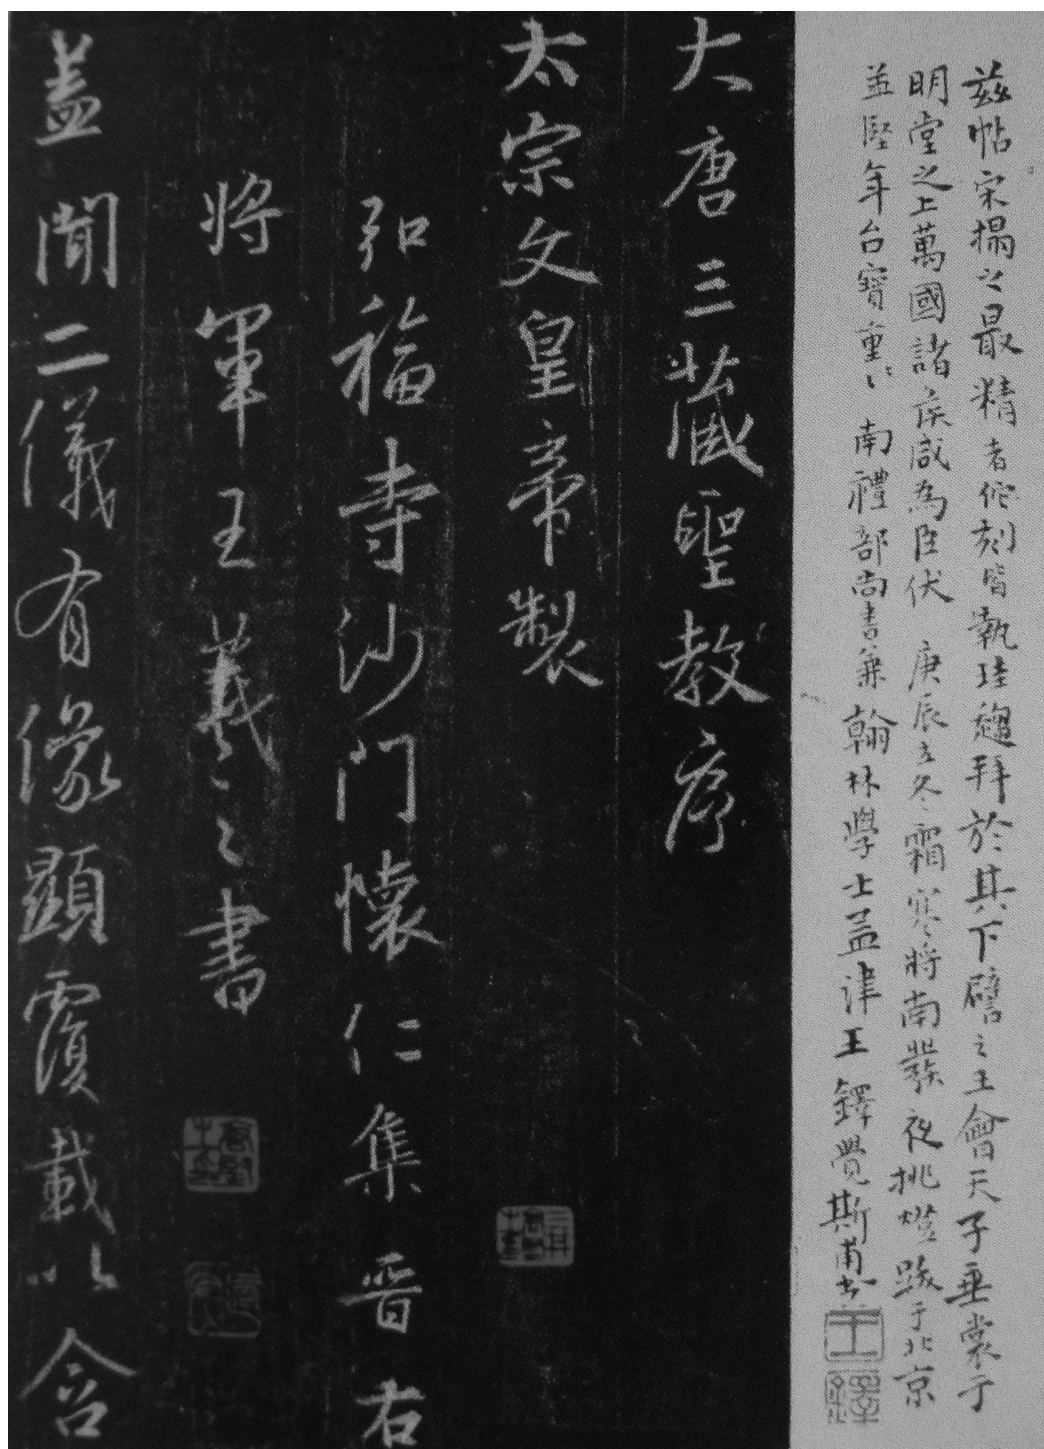 茲帖宋搨之最精者佗刻皆執珪趨拜於其下譬之王會天子垂裳于
明堂之上萬國諸侯咸為臣伏 庚辰立冬霜寒將南發夜挑燈跋于北京
孟堅年台寶重〻 南禮部尚書兼翰林學士孟津王鐸覺斯甫書
王鐸
大唐三藏聖教序
太宗文皇帝製
弘福寺沙門懷仁集晉右
將軍王羲之書
蓋聞二儀有像顯覆載以含